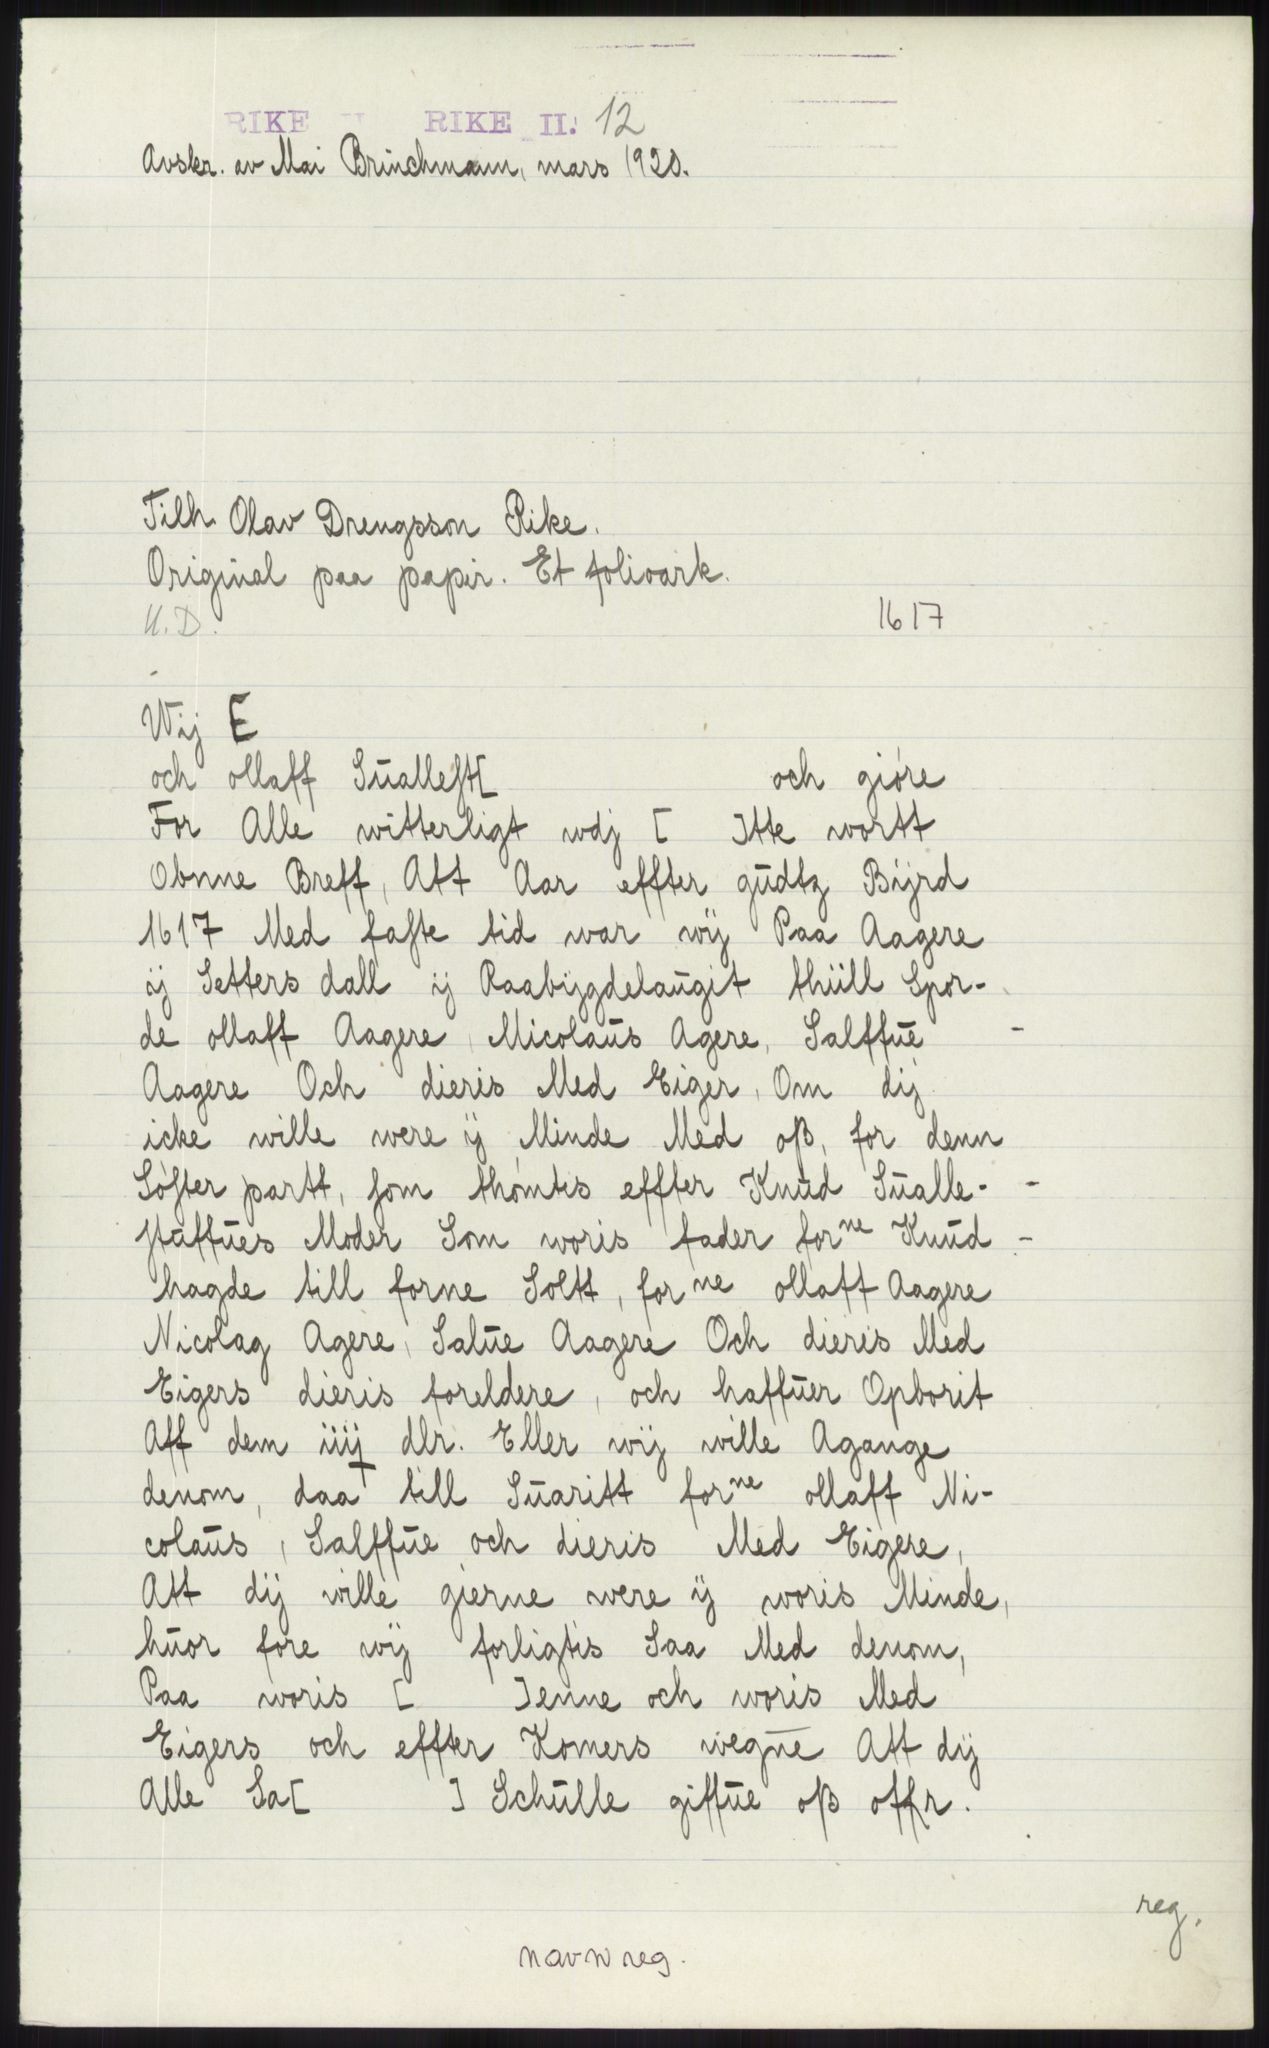 RIKE II RIKE II. 12
Avskr. av Mai Brinchmann, mars 1920.
Tilh. Olav Drengsson Rike.
Original paa papir. Et folioark.
U.D. 1617
Wij [
och ollaff Suallest[ och gióre
For Alle witterligt wdj [ ]tte wortt
Obnne Breff, Att Aar effter gudtz Bijrd
1617 Med faste tid war wij Paa Aagere
ij Setters dall ij Raabijgdelaugit thiill Spor-
de ollaff Aagere, Nicolaus Agere, Salffue
Aagere Och dieris Med Eiger, Om dij
icke wille were ij Minde Med oß, for denn
Sóster partt, som thómtis effter Knud Sualle-
stuffues Moder Som woris fader forne Knud
hagde till forne Soltt, forne ollaff Aagere
Nicolag Agere, Salue Aagere Och dieris Med
Eigers dieris foreldere, och haffuer Opborit
Aff dem iiij dlr. Eller wij wille Agange
denom, daa till Suaritt forne ollaff Ni-
colaus, Salffue och dieris Med Eigere,
Att dij wille gierne were ij woris Minde,
huor fore wij forligtis Saa Med denom,
Paa woris [ ]enne och woris Med
Eigers och effter Komers wegne Att dij
Alle Sa[ ] Schulle giffue oß offr.
reg.
navnreg.